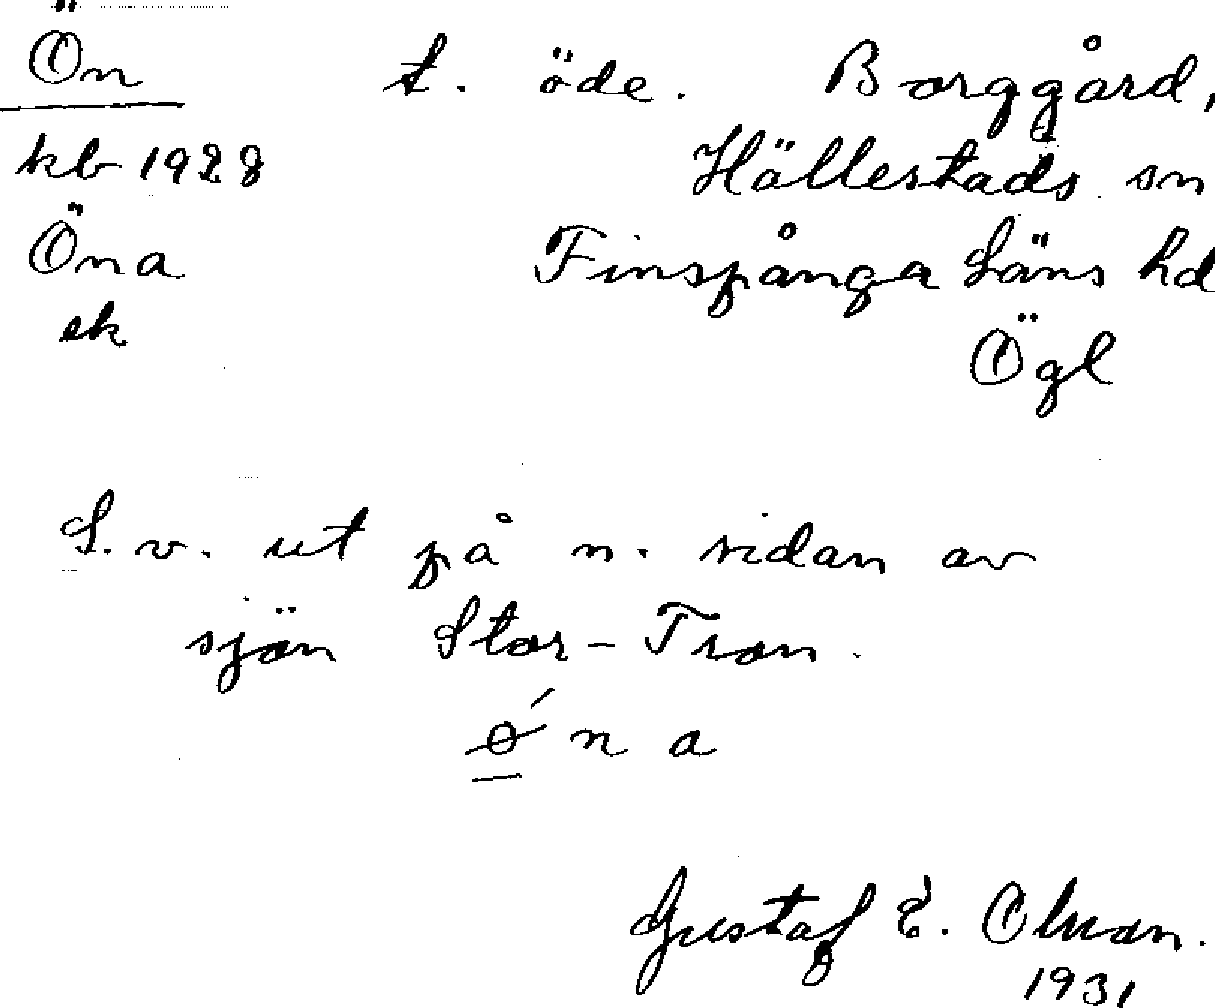 Ön t. öde. Borggård,
kb 1928 Hällestads sn
Öna Finspånga Läns hd
ek Ögl
S.v. ut på n. sidan av
sjön Stor-Tron.
ǿ n a
Gustaf E.
1931